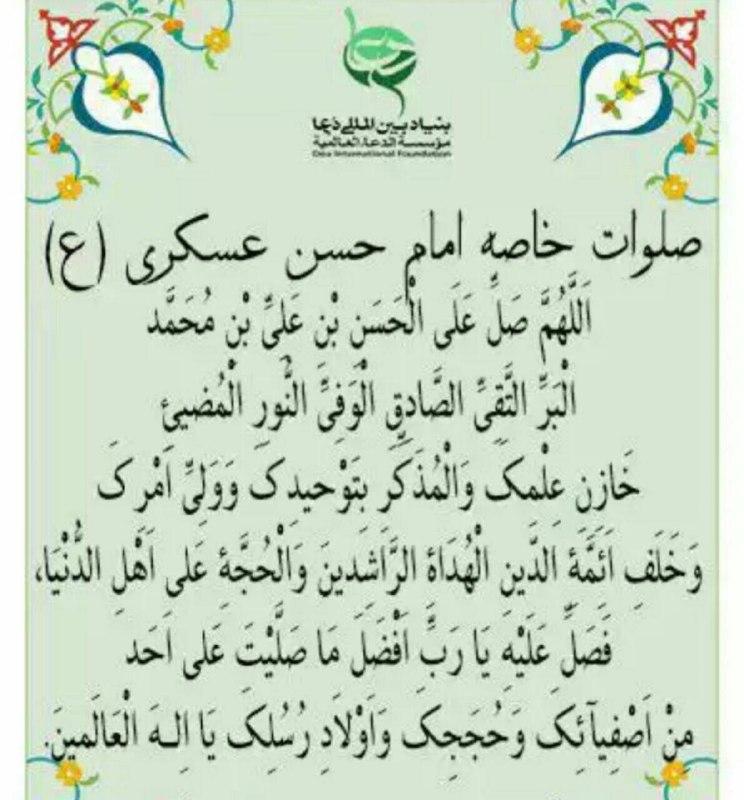 بنیاد بین المللی دعا
مؤسسة الدعاء العالمية
Doa International Foundation
صلوات خاصه امام حسن عسکری (ع)
اَللَّهُمَّ صَلِّ عَلَی الْحَسَنِ بْنِ عَلِیِّ بْنِ مُحَمَّد
الْبَرِّ التَّقِیِّ الصَّادِقِ الْوَفِیِّ النُّورِ الْمُضیئِ
خَازِنِ عِلْمِکَ وَالْمُذَکِّرِ بِتَوْحیدِکَ وَوَلِیِّ اَمْرِکَ
وَخَلَفِ اَئِمَّةِ الدّینِ الْهُدَاةِ الرَّاشِدینَ وَالْحُجَّةِ عَلی اَهْلِ الدُّنْیَا،
فَصَلِّ عَلَیْهِ یَا رَبِّ اَفْضَلَ مَا صَلَّیْتَ عَلی اَحَد
مِنْ اَصْفِیآئِکَ وَحُجَجِکَ وَاَوْلادِ رُسُلِکَ یَا اِلـهَ الْعَالَمینَ.